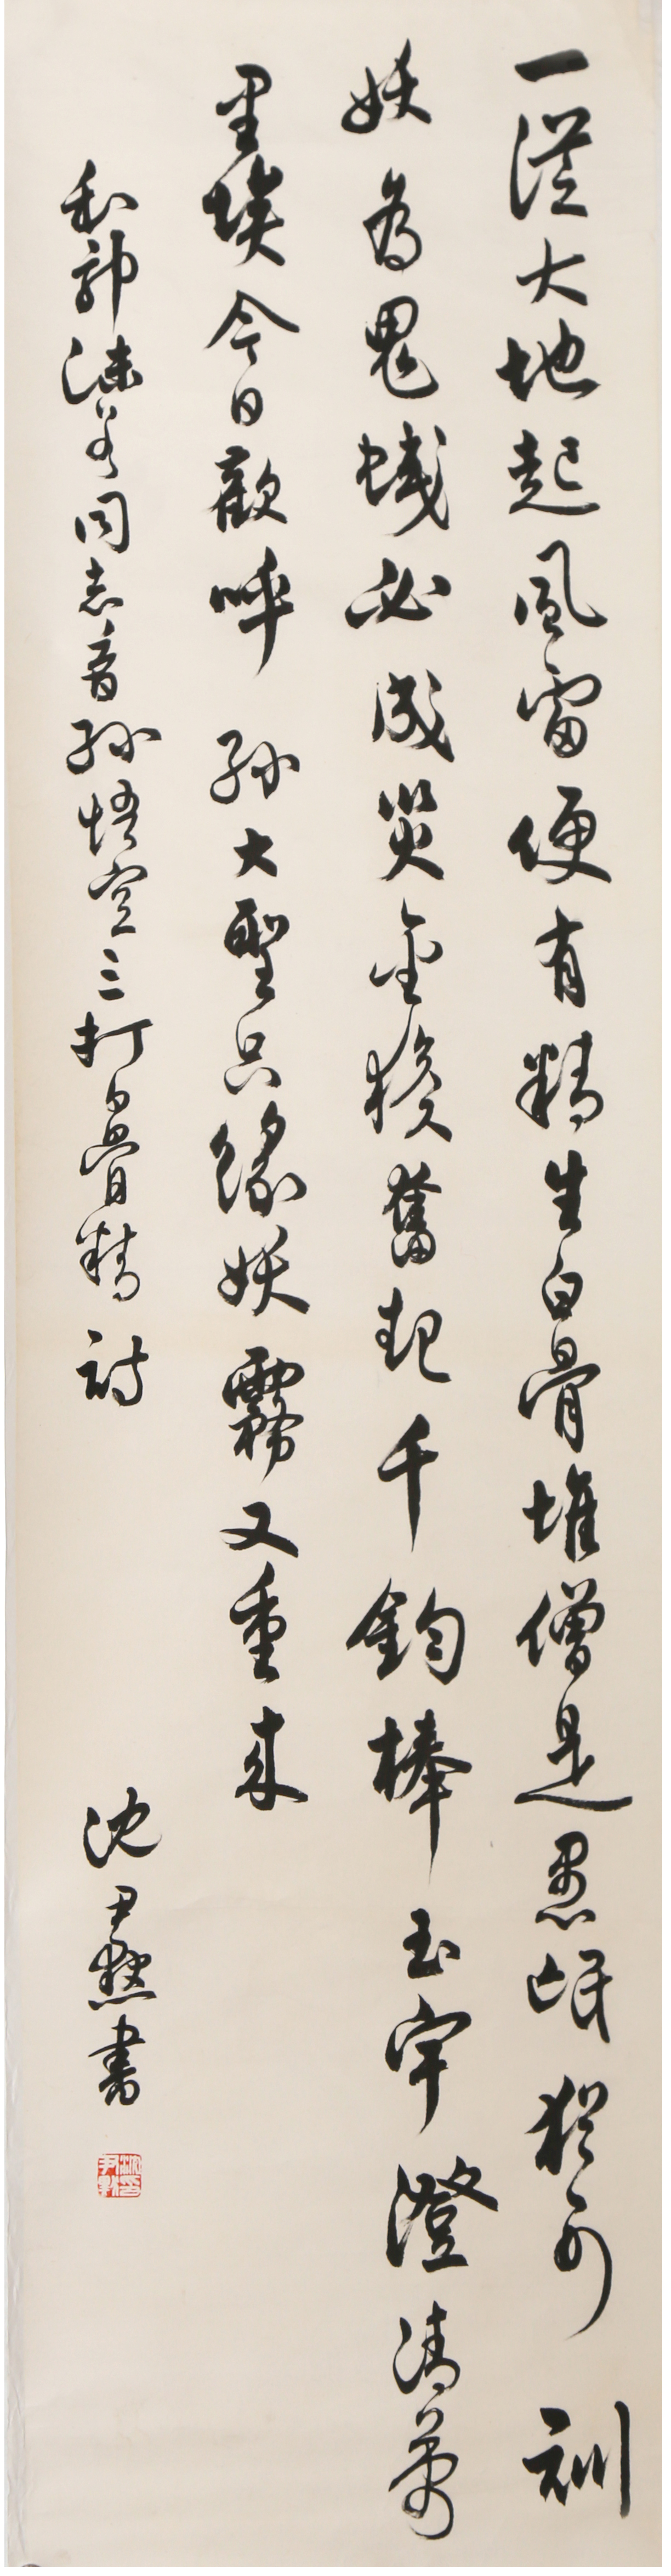 一從大地起風雷便有精生白骨堆僧是愚氓猶可訓
妖為鬼蜮必成災金猴奮起千鈞棒玉宇澄清萬
里埃今日歡呼孫大聖只緣妖霧又重來
和郭沫若同志看孫悟空三打白骨精詩
沈尹默書